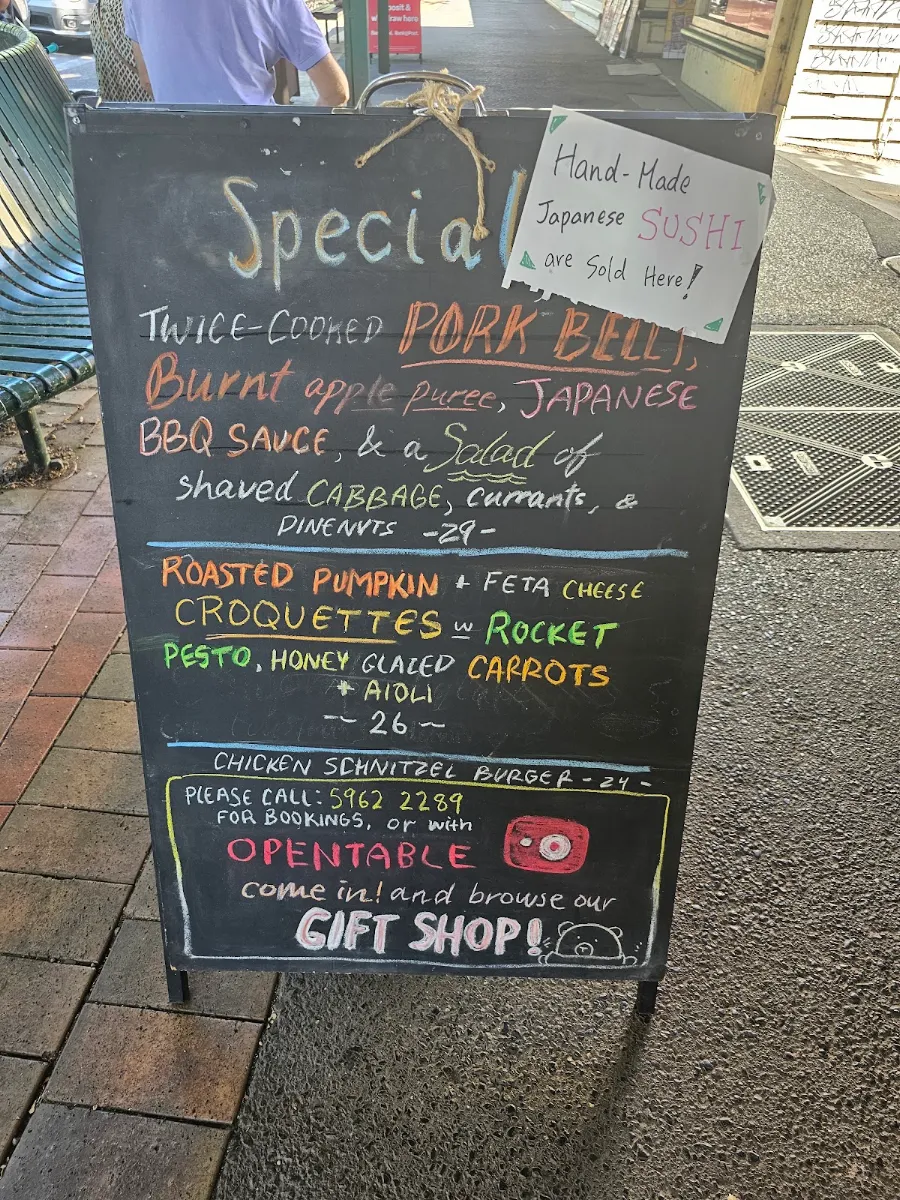 Special
Hand-Made
Japanese SUSHI
are Sold Here!
TWICE-COOKED PORK BELLY,
Burnt apple puree, JAPANESE
BBQ SAUCE, & a Salad of
shaved CABBAGE, currants, &
PINENUTS -29-
ROASTED PUMPKIN + FETA CHEESE
CROQUETTES w ROCKET
PESTO, HONEY GLAZED CARROTS
+ AIOLI
~ 26 ~
CHICKEN SCHNITZEL BURGER - 24 -
PLEASE CALL: 5962 2289
FOR BOOKINGS, or with
OPENTABLE
come in! and browse our
GIFT SHOP!